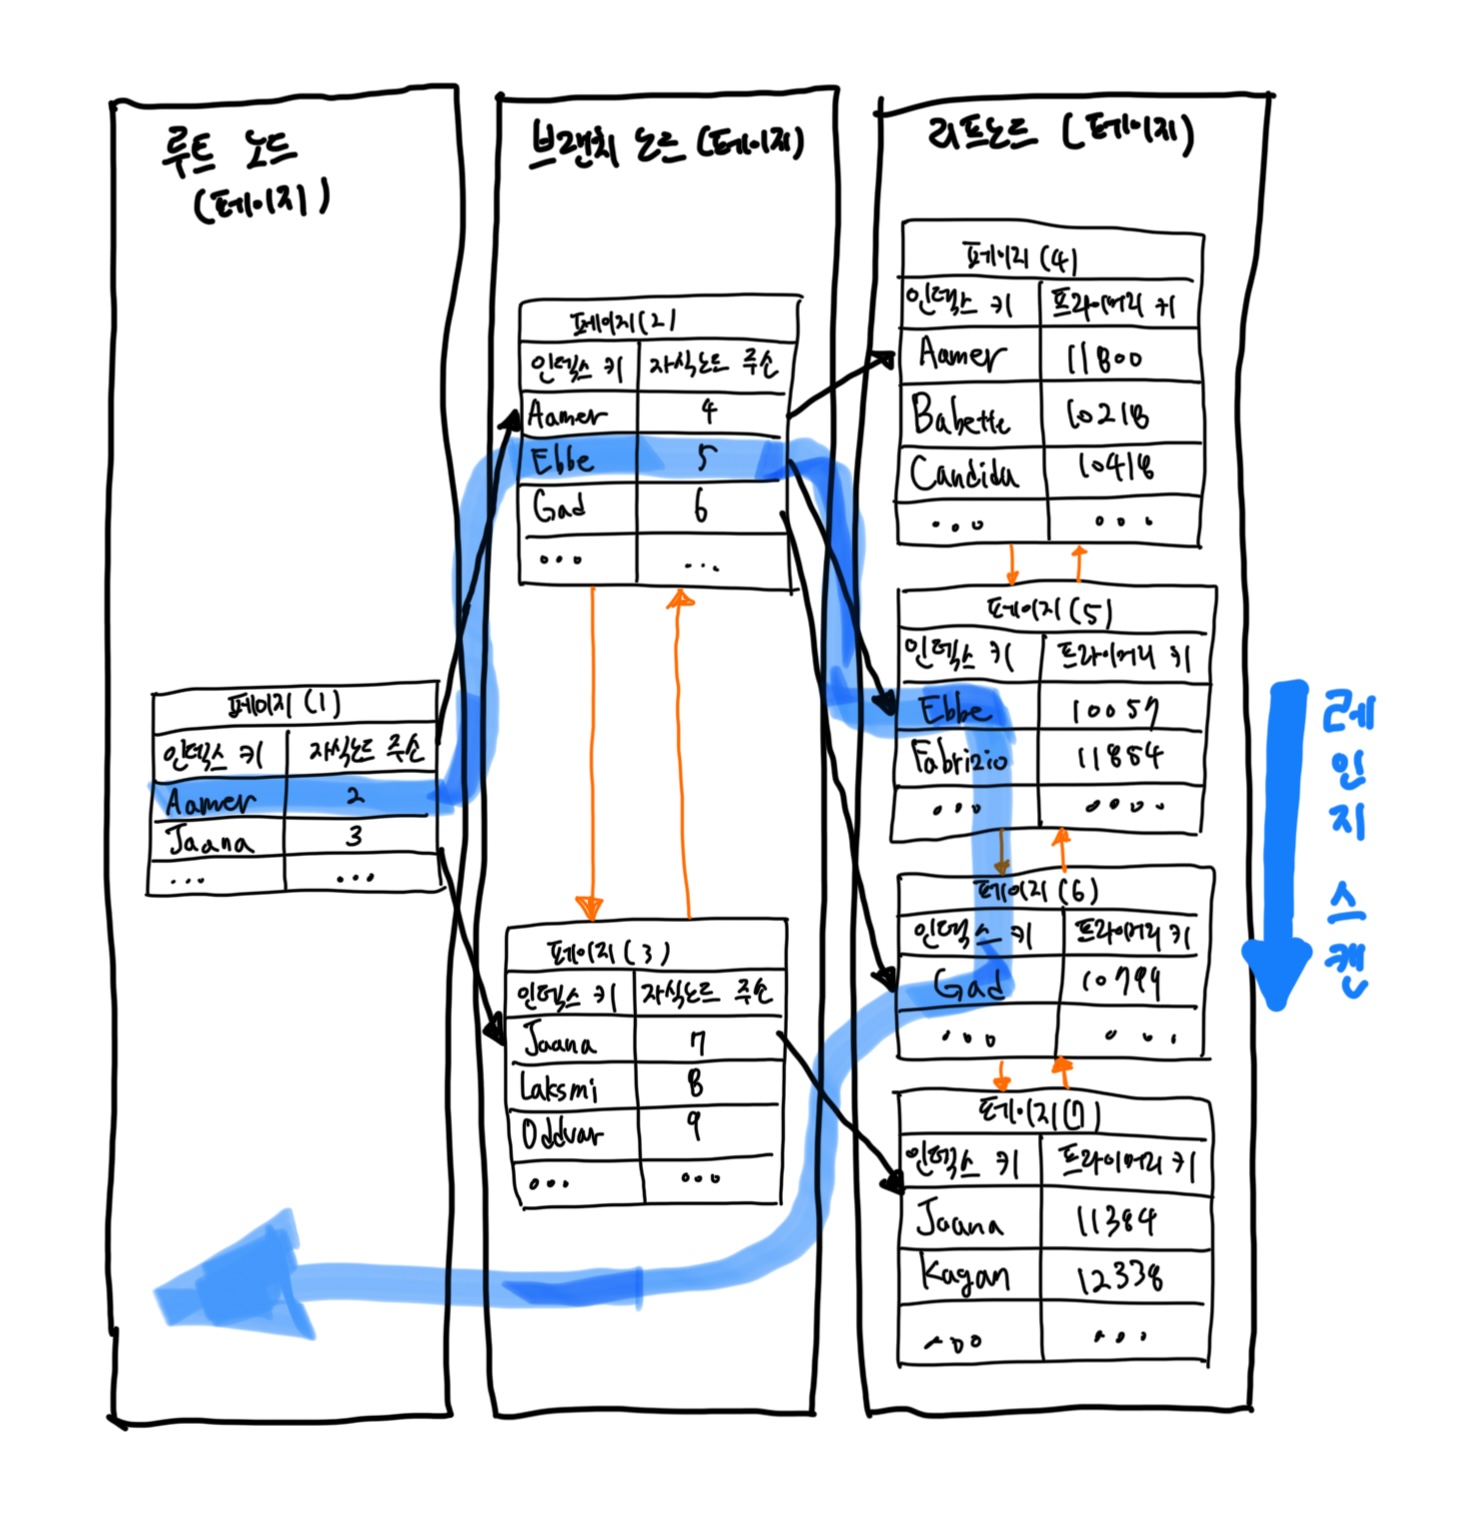 루트 노드
(페이지)
페이지 (1)
인덱스 키 자식노드 주소
Aamer 2
Jaana 3
... ...
브랜치 노드 (페이지)
페이지(2)
인덱스 키 자식노드 주소
Aamer 4
Ebbe 5
Gad 6
... ...
페이지 (3)
인덱스 키 자식노드 주소
Jaana 7
Laksmi 8
Oddvar 9
... ...
리프노드 (페이지)
페이지 (4)
인덱스 키 프라이머리 키
Aamer 11800
Babette 10218
Candida 10418
... ...
페이지 (5)
인덱스 키 프라이머리 키
Ebbe 10057
Fabrizio 11854
... ....
페이지 (6)
인덱스 키 프라이머리 키
Gad 10799
... ...
페이지(7)
인덱스 키 프라이머리 키
Jaana 11384
Kagan 12338
... ...
레
인
지
스
캔